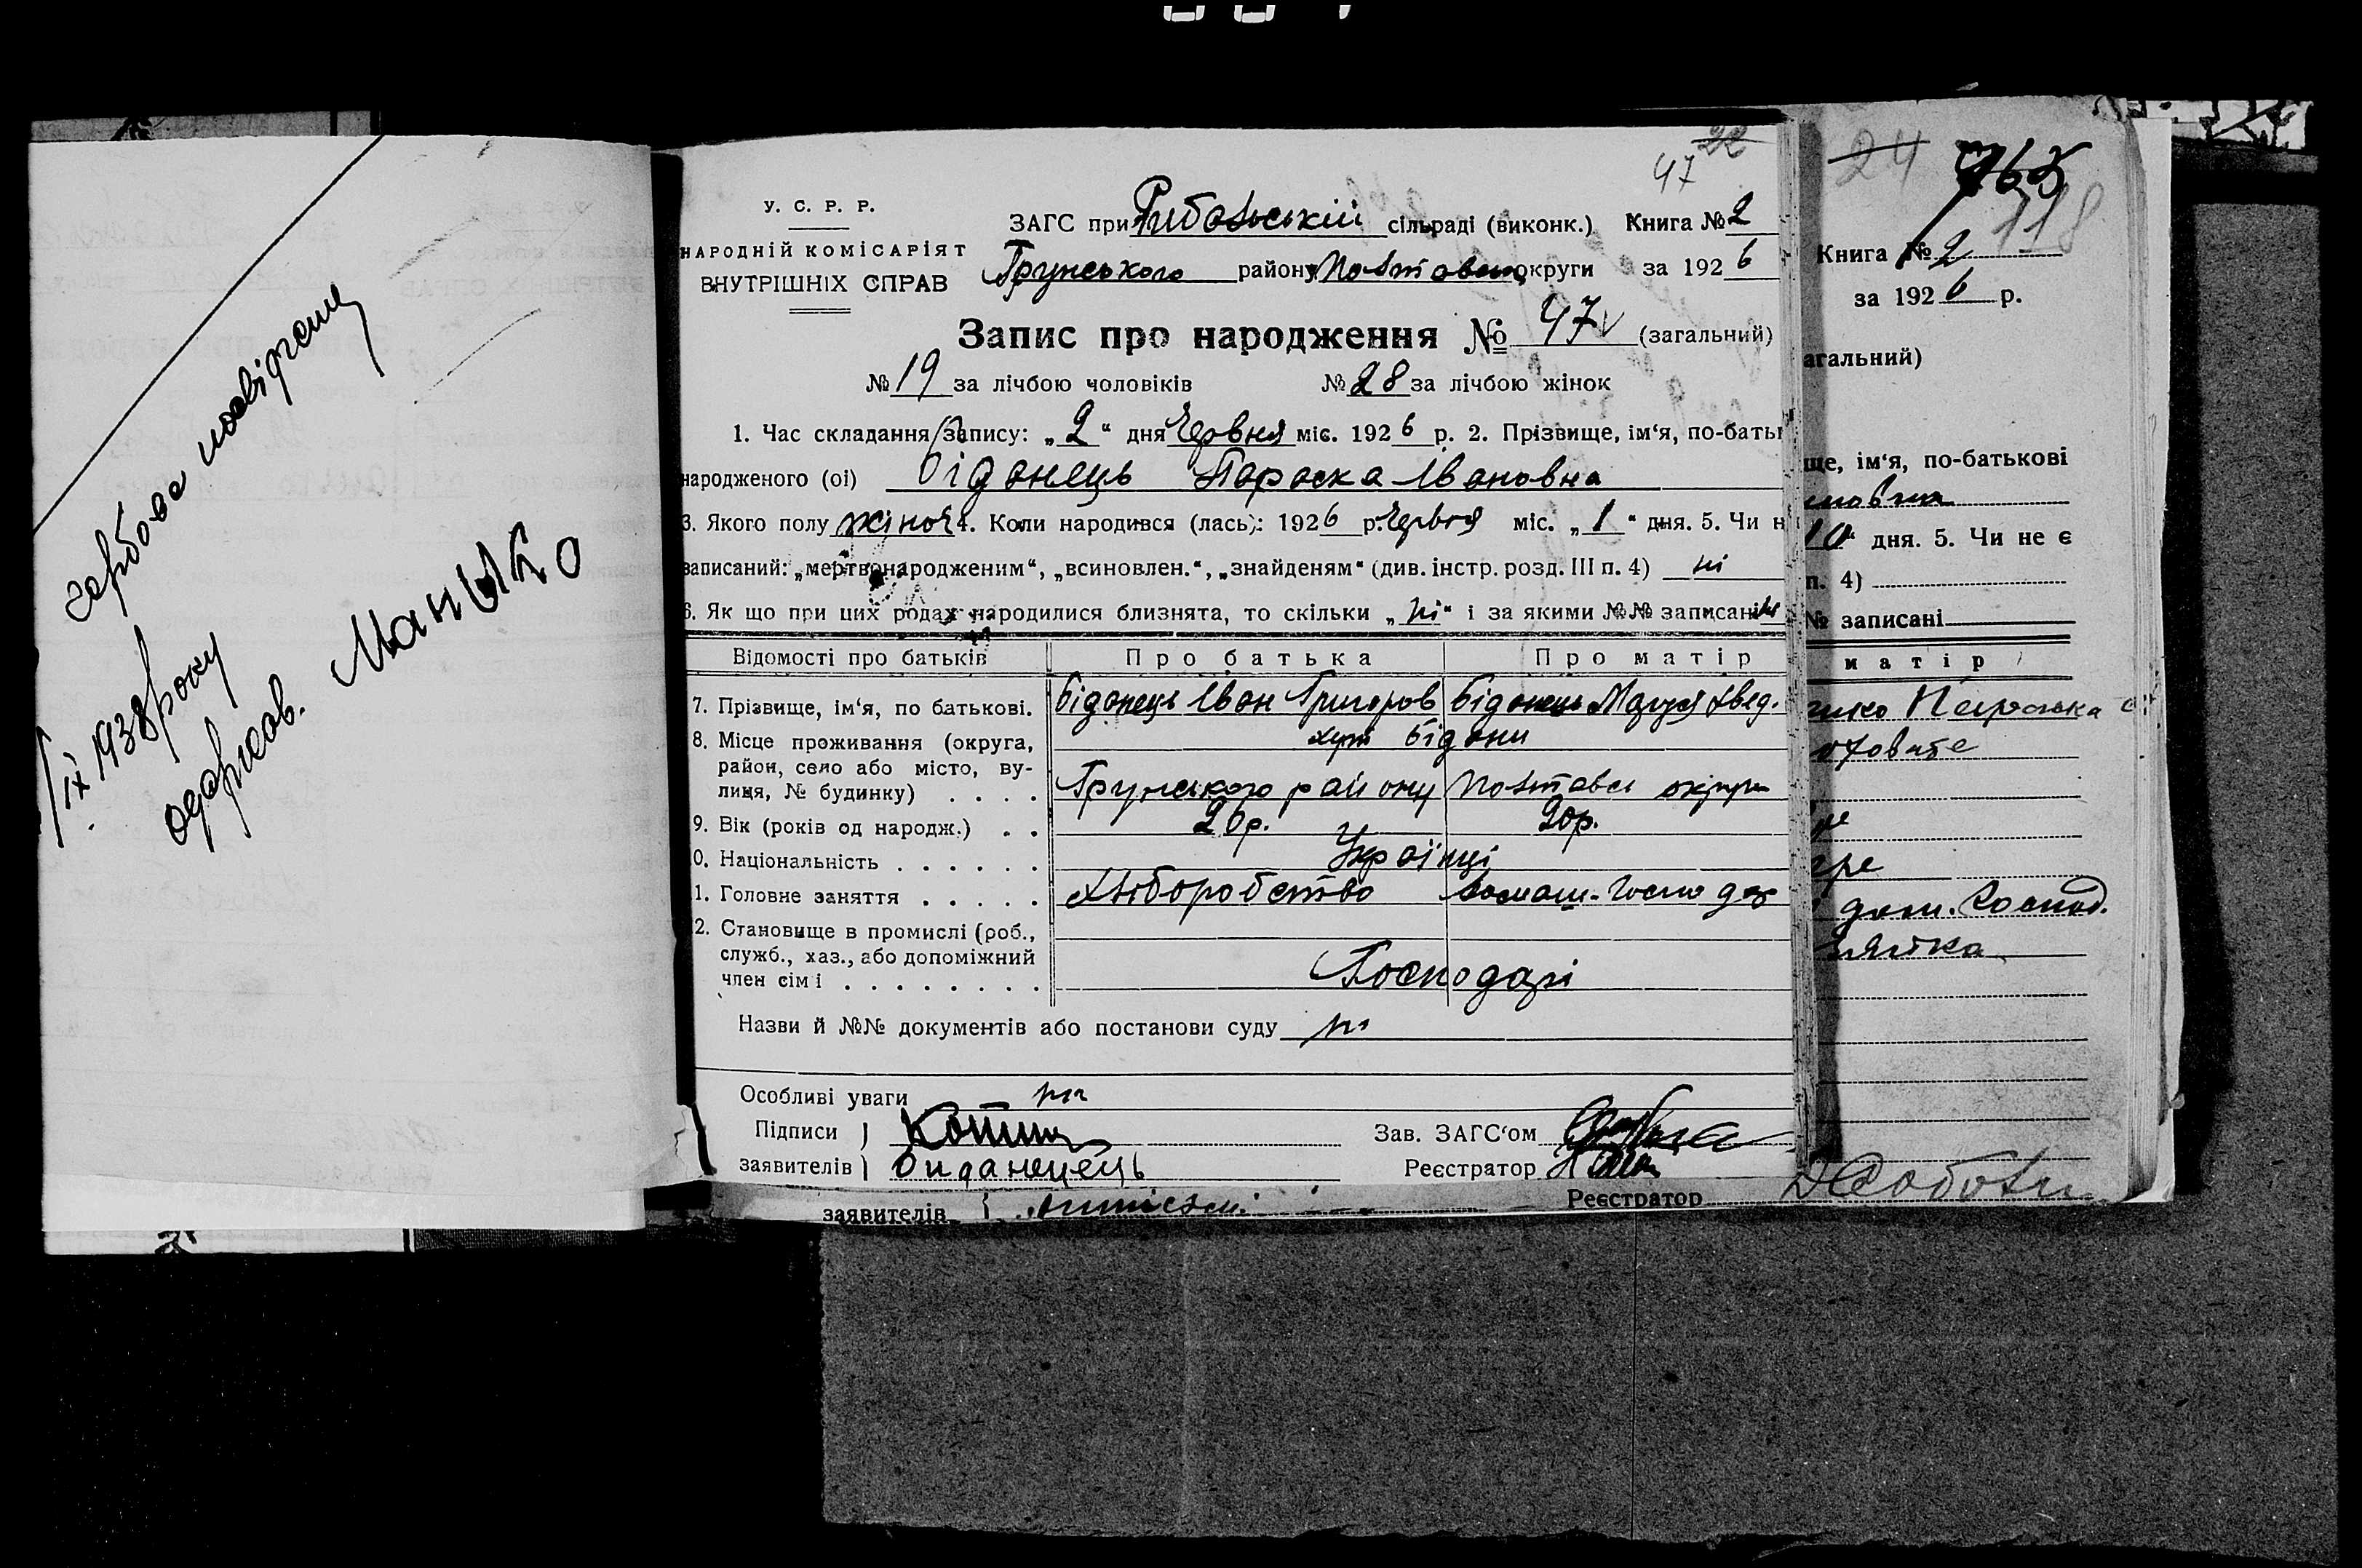 / іх 1938 року
одержав. Манько
22
47
У. С. Р. Р.
НАРОДНІЙ КОМІСАРІЯТ
ВНУТРІШНІХ СПРАВ
ЗАГС при Рибальській сільраді (виконк.) Книга № 2
Грунського району Полтавськ округи за 192 6
Запис про народження № 47 (загальний)
№ 19 за лічбою чоловіків № 28 за лічбою жінок
1. Час складання запису: „ 2 “ дня Червня міс. 192 6 р. 2. Прізвище, ім‘я, по-баты
народженого (ої) Біданець Параска Івановна
3. Якого полу жіноч 4. Коли народився (лась): 192 6 р. Червня міс. „ 1 “ дня. 5. Чи н
записаний: „мертвонародженим“, „всиновлен.“, „знайденям“ (див. інстр. розд. III п. 4) ні
6. Як що при цих родах народилися близнята, то скільки „ ні “ і за якими №№ записані ні
Відомості про батьків Про батька Про матір
7. Прізвище, ім‘я, по батькові. Біданець Іван Григоров Біданець Маруся Хвед.
8. Місце проживання (округа, район, село або місто, вулиця, № будинку) . . . . хут Бідани
Грунського району Полтавсь округи
9. Вік (років од народж.) . . 20р. 20р.
0. Національність . . . . . . Українці
1. Головне заняття . . . . . Хліборобство домаш. господар
2. Становище в промислі (роб.,
служб., хаз., або допоміжний
член сім ї . . . . . . . . . Господарі
Назви й №№ документів або постанови суду ні
Особливі уваги ні
Підписи )
заявителів )
Зав. ЗАГС‘ом
Реєстратор
заявителів
Реєстратор
24
118
Книга № 2
за 192 6 р.
агальний)
ще, ім‘я, по-батькові
10 “ дня. 5. Чи не є
п. 4)
№ записані
матір
дом. господ.